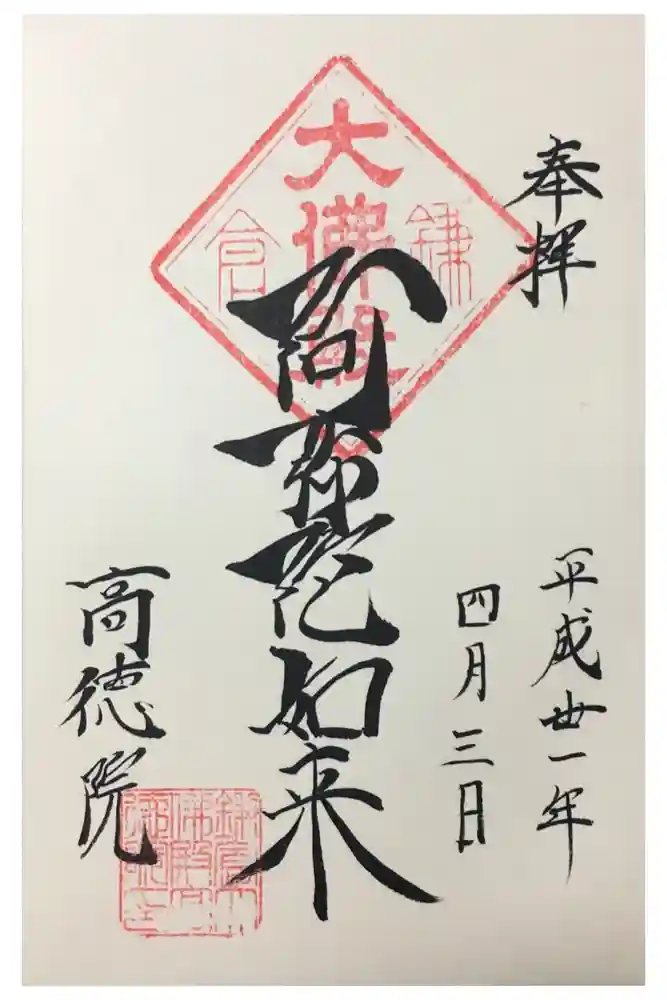 奉拝
平成卅一年
四月三日
大佛殿
鎌倉
阿弥陀如来
高徳院